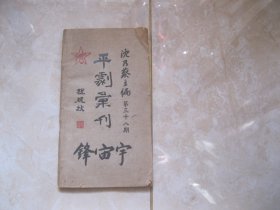 沈乃葵主編
第三十八期
平劇彙刊
宇宙鋒